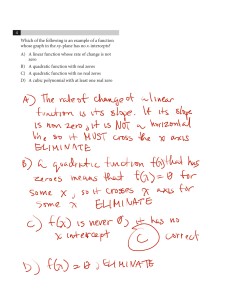 4
Which of the following is an example of a function
whose graph in the xy-plane has no x-intercepts?
A) A linear function whose rate of change is not
zero
B) A quadratic function with real zeros
C) A quadratic function with no real zeros
D) A cubic polynomial with at least one real zero
A) The rate of change of a linear
function is its slope. If its slope
is non zero, it is NOT a horizontal
line so it MUST cross the x axis
ELIMINATE
B) A quadratic function f(x) that has
zeroes means that f(x) = 0 for
some x, so it crosses x axis for
some x ELIMINATE
C) f(x) is never 0, it has no
x intercept C correct
D) f(x) = 0, ELIMINATE